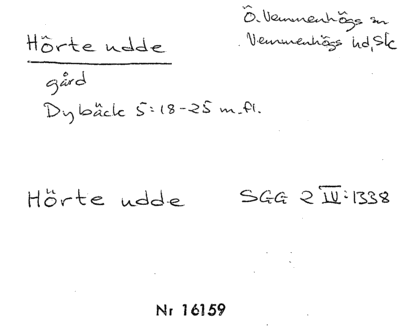 Hörte udde
Ö. Vemmenhögs sn
Vemmenhögs hd, Sk
gård
Dybäck 5:18-25 m.fl.
Hörte udde
SGG 2 IV:1338
Nr 16159